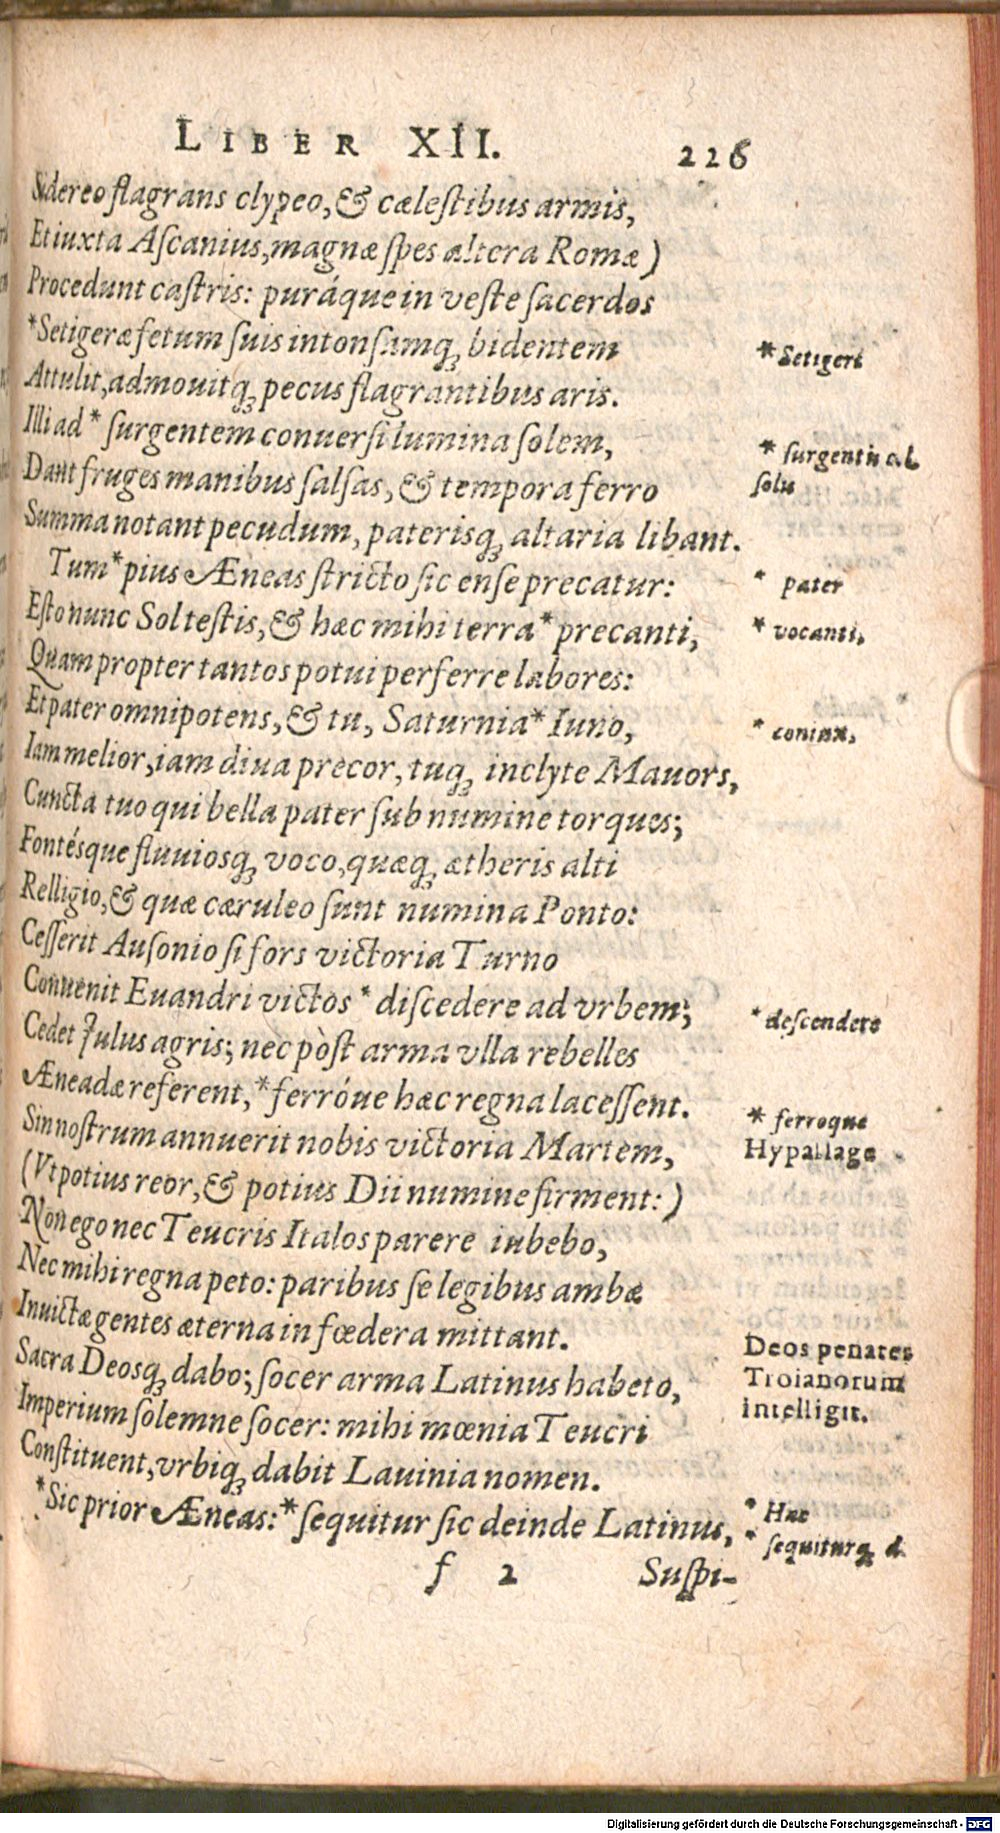 LIBER XII. 226
Sidereo flagrans clypeo, & cælestibus armis,
Et iuxta Ascanius, magnæ spes altera Romæ)
Procedunt castris: puráque in veste sacerdos
*Setigeræ fetum suis intonsumq; bidentem
*Setigeri
Attulit, admouitq; pecus flagrantibus aris.
Illi ad * surgentem conuersi lumina solem,
* surgentis al.
Dant fruges manibus salsas, & tempora ferro
solis
Summa notant pecudum, paterisq; altaria libant.
Tum *pius Æneas stricto sic ense precatur:
* pater
Esto nunc Sol testis, & hæc mihi terra * precanti,
* vocanti,
Quam propter tantos potui perferre labores:
Et pater omnipotens, & tu, Saturnia * Iuno,
* coniux,
Iam melior, iam diua precor, tuq; inclyte Mauors,
Cuncta tuo qui bella pater sub numine torques;
Fontésque fluuiosq; voco, quæq; ætheris alti
Relligio, & quæ cæruleo sunt numina Ponto:
Cesserit Ausonio si fors victoria Turno
Conuenit Euandri victos * discedere ad vrbem;
* descendere
Cedet Iulus agris; nec pòst arma vlla rebelles
Æneadæ referent, *ferróue hæc regna lacessent.
* ferroque
Sin nostrum annuerit nobis victoria Martem,
Hypallage
(Vt potius reor, & potius Dii numine firment:)
Non ego nec Teucris Italos parere iubebo,
Nec mihi regna peto: paribus se legibus ambæ
Inuictæ gentes æterna in fœdera mittant.
Deos penates
Sacra Deosq; dabo; socer arma Latinus habeto,
Troianorum
Imperium solemne socer: mihi mœnia Teucri
intelligit.
Constituent, vrbiq; dabit Lauinia nomen.
*Sic prior Æneas: *sequitur sic deinde Latinus,
* Hæc
* sequiturq; d.
f 2 Suspi-
Digitalisierung gefördert durch die Deutsche Forschungsgemeinschaft - DFG